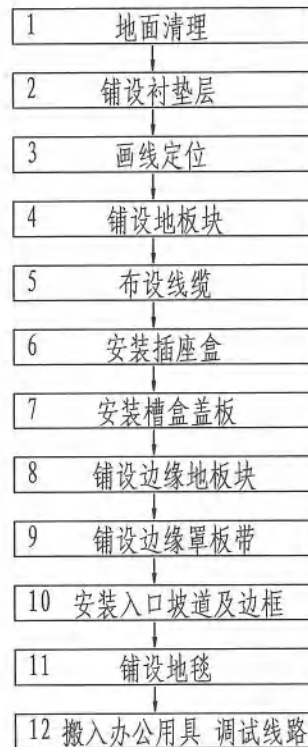 1 地面清理
2 铺设衬垫层
3 画线定位
4 铺设地板块
5 布设线缆
6 安装插座盒
7 安装槽盒盖板
8 铺设边缘地板块
9 铺设边缘罩板带
10 安装入口坡道及边框
11 铺设地毯
12 搬入办公用具 调试线路